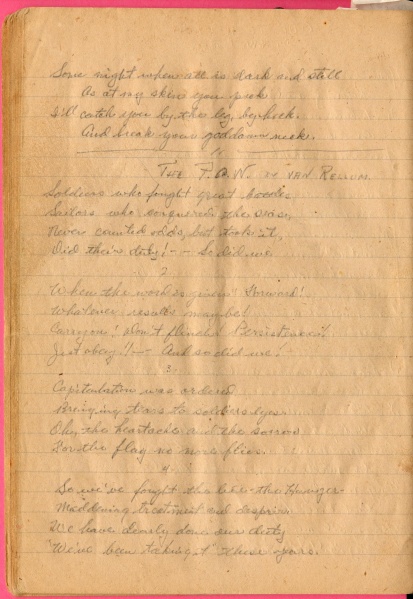 Some night when all is dark and still
As at my skin you pick
I'll catch you by the leg, by heck.
And break your goddamn neck.
The P.O.W. by Van
Soldiers who fought great
Sailors who conquered the seas,
Never counted odds, but took it,
Did their duty! - - So did we
2
When the word is given "Forward!
Whatever results maybe!
Carry on! Don't flinch! Persistence!
Just obey!! - - And so did we!
3
Capitulation was ordered
Bringing tears to soldiers eyes
Oh, the heartache and the sorrow
For the flag no more flies.
4
So we've fought the the Hunger
Maddening treatment and
We have dearly done our duty
"We've been taking it" these years.